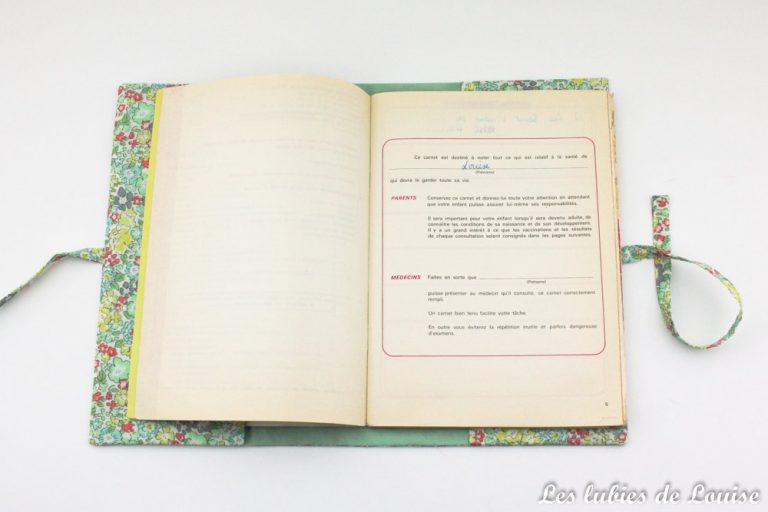 Ce carnet est destiné à noter tout ce qui est relatif à la santé de
Louise
(Prénoms)
qui devra le garder toute sa vie.
PARENTS Conservez ce carnet et donnez-lui toute votre attention en attendant
que votre enfant puisse assurer lui-même ses responsabilités.
Il sera important pour votre enfant lorsqu'il sera devenu adulte, de
connaître les conditions de sa naissance et de son développement.
Il y a un grand intérêt à ce que les vaccinations et les résultats
de chaque consultation soient consignés dans les pages suivantes.
MÉDECINS Faites en sorte que
(Prénoms)
puisse présenter au médecin qu'il consulte, ce carnet correctement
rempli.
Un carnet bien tenu facilite votre tâche.
En outre vous éviterez la répétition inutile et parfois dangereuse
d'examens.
Les lubies de Louise